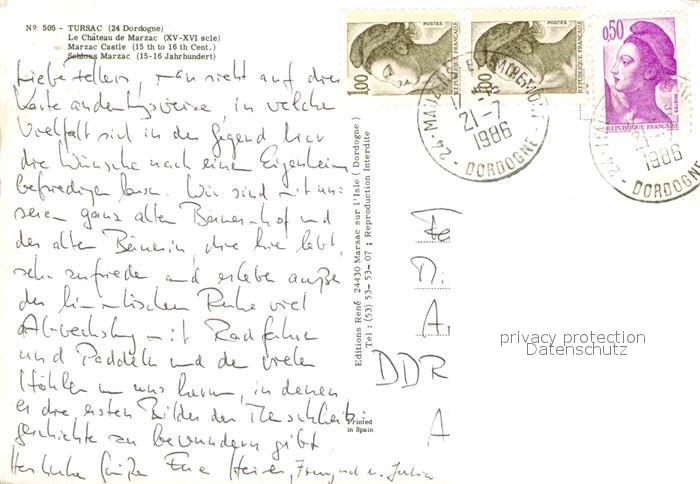 Nº 505 - TURSAC (24 Dordogne)
Le Château de Marzac (XV-XVI scle)
Marzac Castle (15 th to 16 th Cent.)
Schloss Marzac (15-16 Jahrhundert)
Liebe man sieht auf der
Karte andeutungsweise in welcher
Vielfalt sich in der Gegend hier
die Wünsche nach einem Eigenheim
befriedigen lassen. Wir sind mit un-
serem ganz alten Bauernhof und
der alten Bäuerin, die hier lebt,
sehr zufrieden und erleben außer
der himmlischen Ruhe viel
Abwechslung mit Radfahren
und Paddeln und den vielen
Höhlen um uns herum, in denen
es die ersten Bilder der Menschheits-
geschichte zu bewundern gibt.
Herzliche Grüße Eure Heiner, Irmgard u. Julia
Editions René 24430 Marsac sur l'Isle (Dordogne)
Tel : (53) 53-53-07 ; Reproduction Interdite
Printed
in Spain
1,00
POSTES
REPUBLIQUE FRANÇAISE
1,00
POSTES
REPUBLIQUE FRANÇAISE
0,50
REPUBLIQUE FRANÇAISE
21-7
1986
DORDOGNE
1986
DORDOGNE
DDR
A
privacy protection
Datenschutz